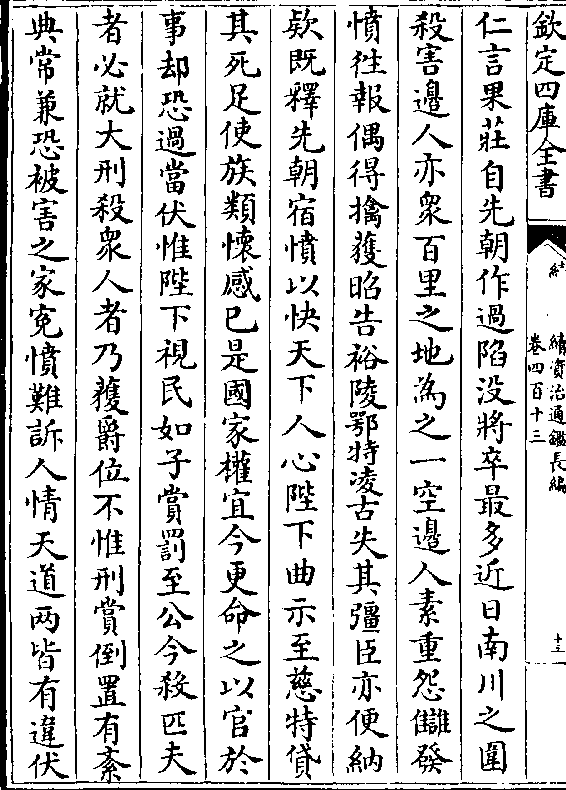 欽定四庫全書
續資治通鑑長編
卷四百十三
仁言果莊自先朝作過陷没將卒最多近日南川之圍
殺害邊人亦衆百里之地為之一空邊人素重怨讎發
憤徃報偶得擒獲昭告裕陵鄂特凌古失其彊臣亦便納
欵既釋先朝宿憤以快天下人心陛下曲示至慈特貸
其死足使族類懷感已是國家權宜今更命之以官於
事却恐過當伏惟陛下視民如子賞罰至公今殺匹夫
者必就大刑殺衆人者乃獲爵位不惟刑賞倒置有紊
典常兼恐被害之家寃憤難訴人情天道两皆有違伏